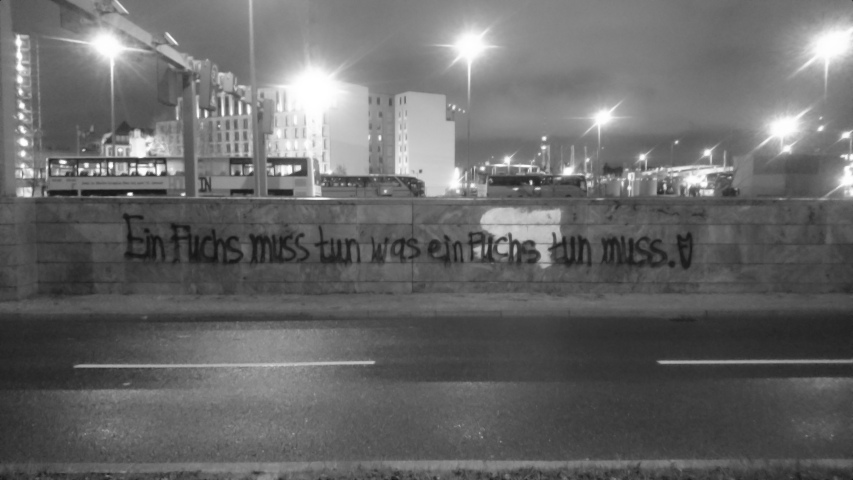 Ein Fuchs muss tun was ein Fuchs tun muss.
IN